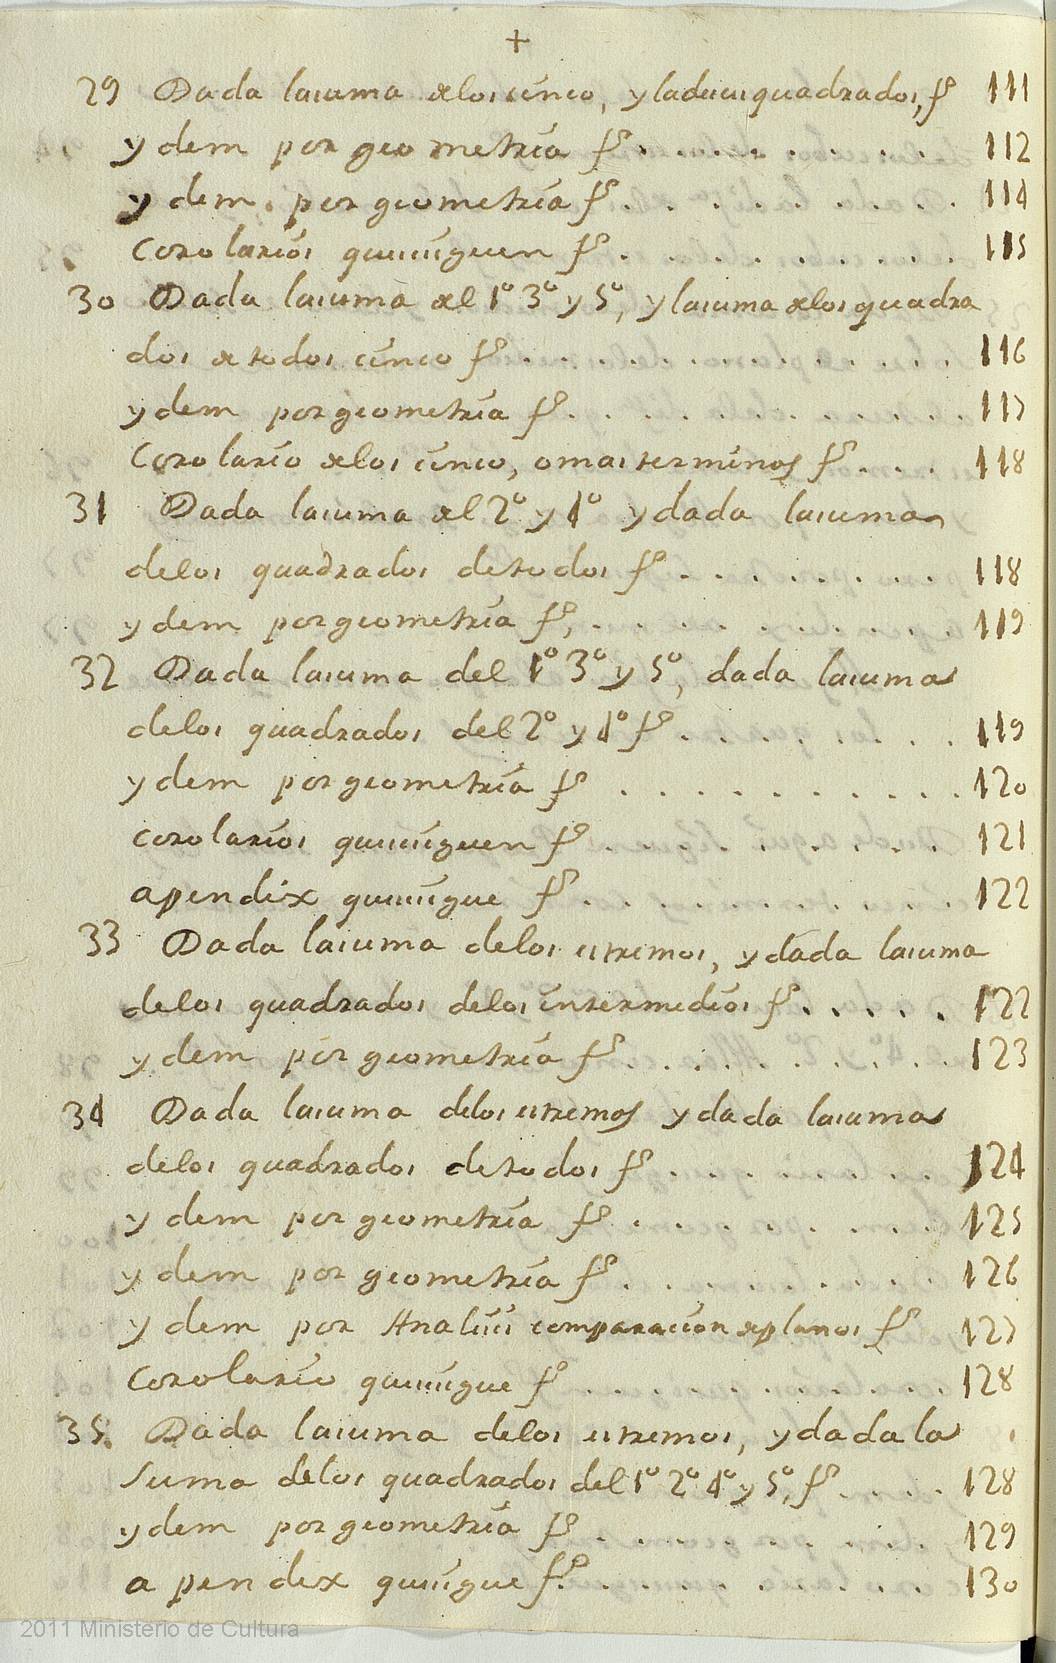 +
29 Dada lasuma delos cinco, y ladesusquadrados, fº 111
ydem por geometria fº. . . . . . . . . . 112
ydem por geometria fº. . . . . . . . . . 114
corolarios quesesiguen fº. . . . . . . . . . 115
30 Dada lasuma del 1º 3º y 5º, y lasuma delos quadra
dos de todos cinco fº. . . . . . . . . . 116
ydem por geometria fº. . . . . . . . . . 117
Corolario delos cinco, omas terminos fº. . . . 118
31 Dada lasuma del 2º y 4º ydada lasuma
delos quadrados detodos fº. . . . . . . . . 118
ydem por geometria fº, . . . . . . . . . 119
32 Dada lasuma del 1º 3º y 5º, dada lasuma
delos quadrados del 2º y 4º fº. . . . . . . . 119
ydem por geometria fº . . . . . . . . . . 120
corolarios quesesiguen fº. . . . . . . . . 121
apendix quesesigue fº. . . . . . . . . . 122
33 Dada lasuma delos estremos, y dada lasuma
delos quadrados delos intermedios fº. . . . . . 122
ydem por geometria fº. . . . . . . . . . 123
34 Dada lasuma delos estremos ydada lasuma
delos quadrados detodos fº. . . . . . . . . 124
ydem por geometria fº . . . . . . . . . 125
ydem por geometria fº. . . . . . . . . . 126
ydem por Analisis comparacion deplanos fº 127
Corolario quesesigue fº. . . . . . . . . . 128
35. Dada lasuma delos estremos, ydada la
suma delos quadrados del 1º 2º 4º y 5º, fº. . . . 128
ydem por geometria fº. . . . . . . . . . 129
apendix quesigue fº. . . . . . . . . . 130
2011 Ministerio de Cultura